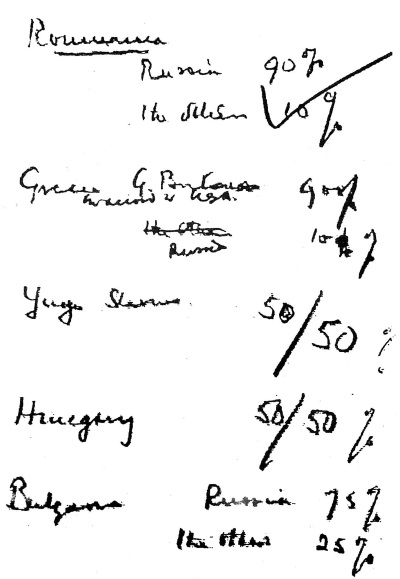 Roumania
Russia 90%
The others 10%
Greece G. Britain 90%
in accord with USA.
The others
Russia 10%
Yugo Slavia 50/50%
Hungary 50/50%
Bulgaria Russia 75%
The others 25%